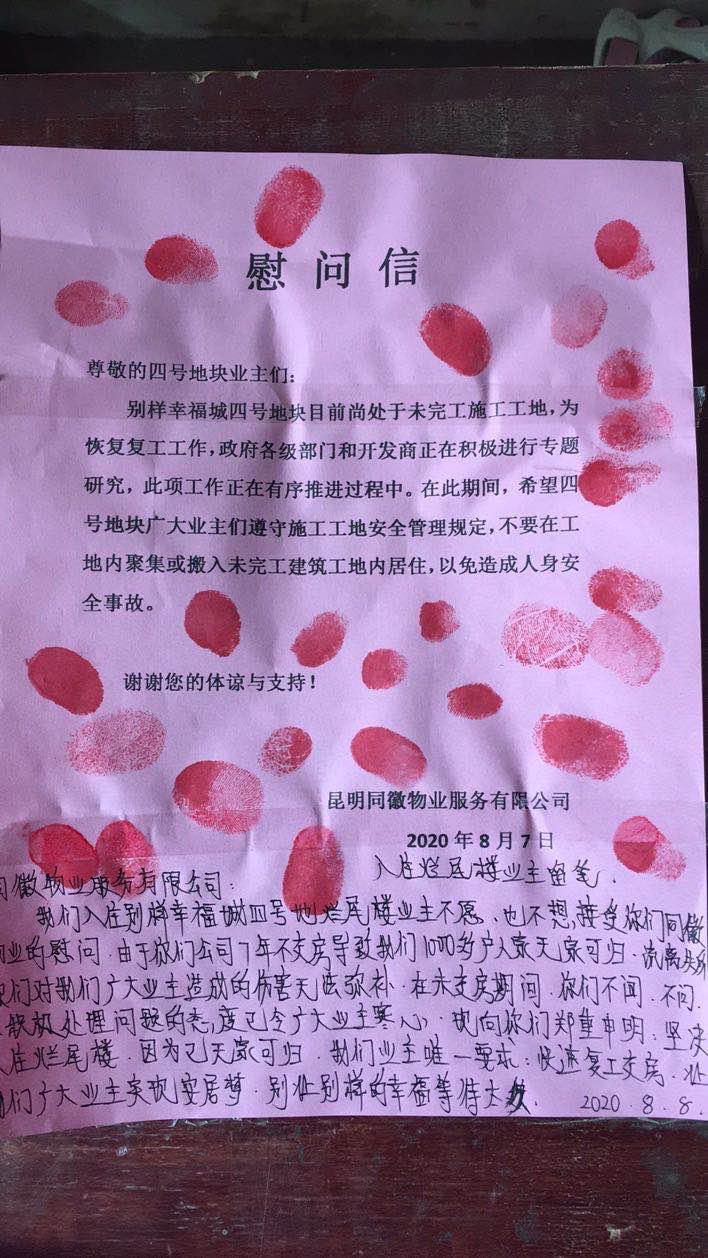 慰问信
尊敬的四号地块业主们:
别样幸福城四号地块目前尚处于未完工施工工地,为
恢复复工工作,政府各级部门和开发商正在积极进行专题
研究,此项工作正在有序推进过程中。在此期间,希望四
号地块广大业主们遵守施工工地安全管理规定,不要在工
地内聚集或搬入未完工建筑工地内居住,以免造成人身安
全事故。
谢谢您的体谅与支持!
昆明同徽物业服务有限公司
2020年8月7日
入住烂尾楼业主留笔.
同徽物业服务有限公司:
我们入住别样幸福城四号地烂尾楼业主不愿、也不想接受你们同徽
物业的慰问.由于你们公司7年不交房导致我们1000多户人家无家可归.流离失所
你们对我们广大业主造成的伤害无法弥补.在未交房期间.你们不闻.不问.
极处理问题的态度已令广大业主寒心.现向你们郑重申明:坚决
入住烂尾楼.因为已无家可归.我们业主唯一要求:快速复工交房.让
我们广大业主实现安居梦.别让别样的幸福等待太久.
2020.8.8.